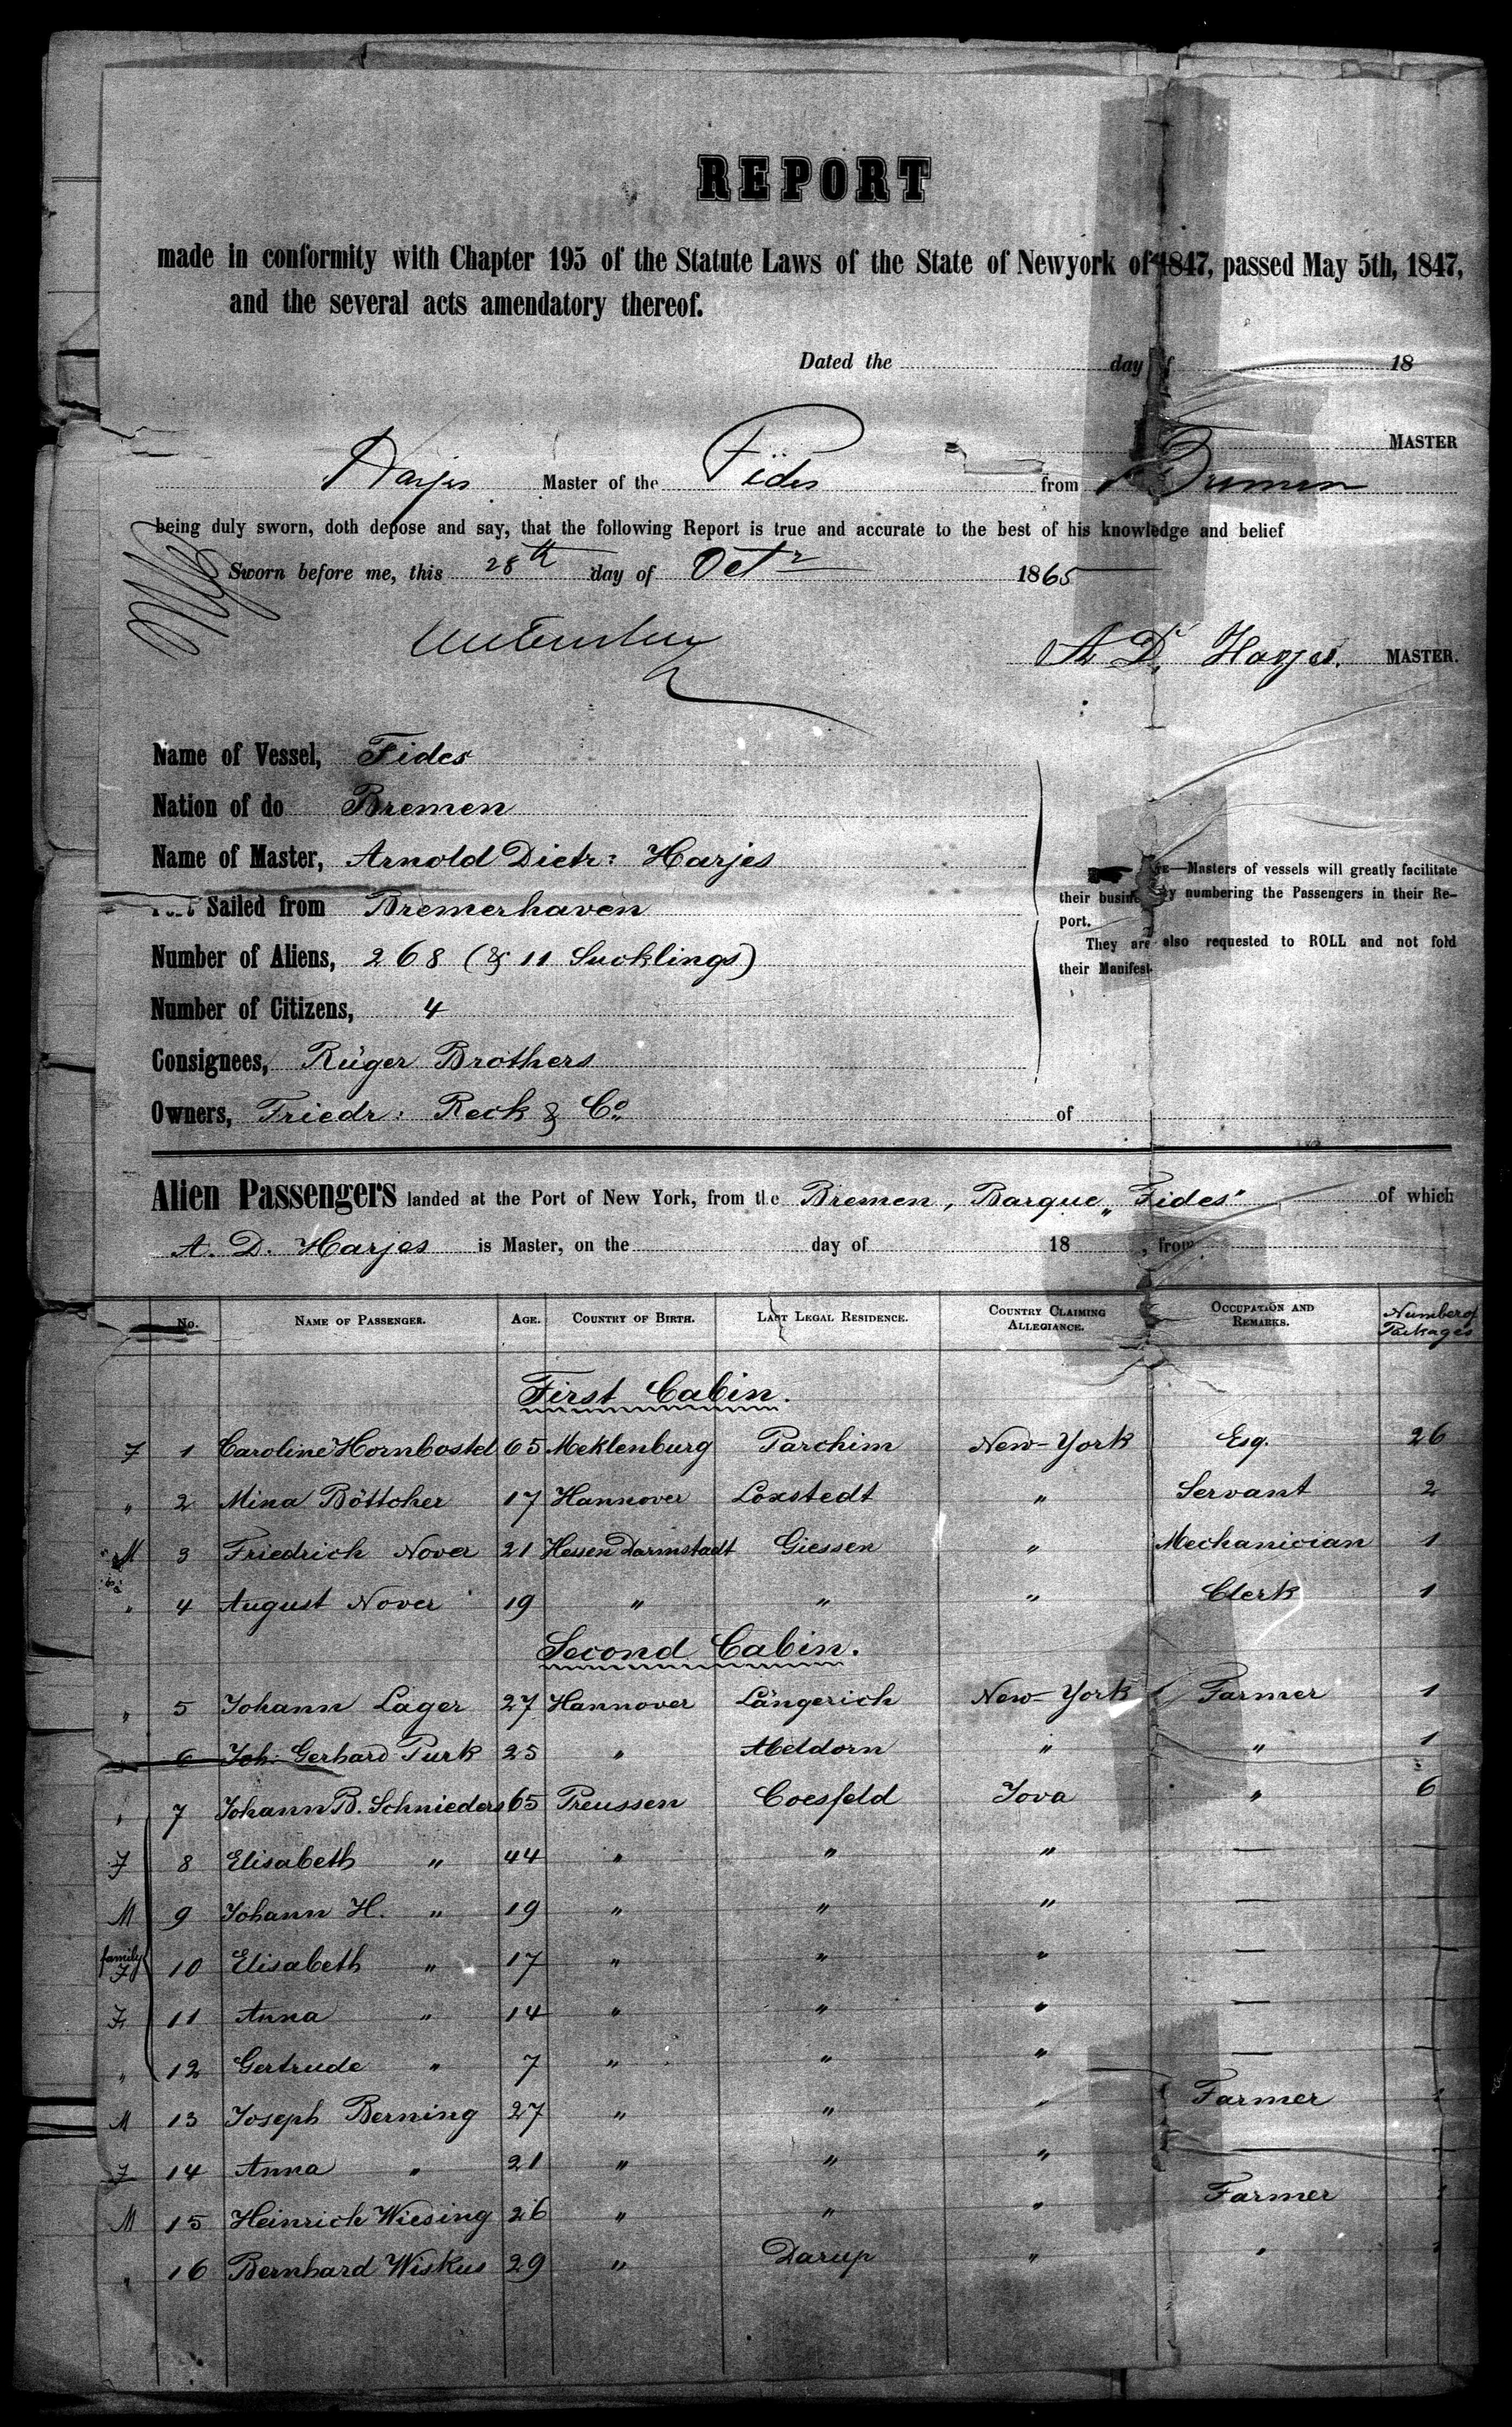 REPORT
made in conformity with Chapter 195 of the Statute Laws of the State of Newyork of 1847, passed May 5th, 1847,
and the several acts amendatory thereof.
Dated the day of 18
MASTER
Harjes Master of the Fides from Bremen
being duly sworn, doth depose and say, that the following Report is true and accurate to the best of his knowledge and belief
Sworn before me, this 28th day of Octr 1865
A. D. Harjes. MASTER.
Name of Vessel, Fides
Nation of do Bremen
Name of Master, Arnold Dietr: Harjes
Sailed from Bremerhaven
Number of Aliens, 268 (& 11 Sucklings)
Number of Citizens, 4
Consignees, Rüger Brothers
Owners, Friedr: Reck & Co. of
—Masters of vessels will greatly facilitate
their business by numbering the Passengers in their Re-
port.
They are also requested to ROLL and not fold
their Manifest.
Alien Passengers landed at the Port of New York, from the Bremen, Barque „Fides" of which
A. D. Harjes is Master, on the day of 18 , from
No. NAME OF PASSENGER. AGE. COUNTRY OF BIRTH. LAST LEGAL RESIDENCE. COUNTRY CLAIMING ALLEGIANCE. OCCUPATION AND REMARKS. Number of Packages
First Cabin.
F 1 Caroline Hornbostel 65 Meklenburg Parchim New-York Esq. 26
" 2 Mina Böttcher 17 Hannover Loxstedt " Servant 2
M 3 Friedrich Nover 21 Hessen Darmstadt Giessen " Mechanician 1
" 4 August Nover 19 " " " Clerk 1
Second Cabin.
" 5 Johann Lager 27 Hannover Längerich New-York Farmer 1
" 6 Joh: Gerhard Purk 25 " Meldorn " " 1
" 7 Johann B. Schnieders 65 Preussen Coesfeld Iova " 6
F 8 Elisabeth " 44 " " " — —
M 9 Johann H. " 19 " " " — —
family F 10 Elisabeth " 17 " " " — —
F 11 Anna " 14 " " " — —
" 12 Gertrude " 7 " " " — —
M 13 Joseph Berning 27 " " " Farmer
F 14 Anna " 21 " " "
M 15 Heinrich Wiesing 26 " " " Farmer
" 16 Bernhard Wiskus 29 " Darup " "